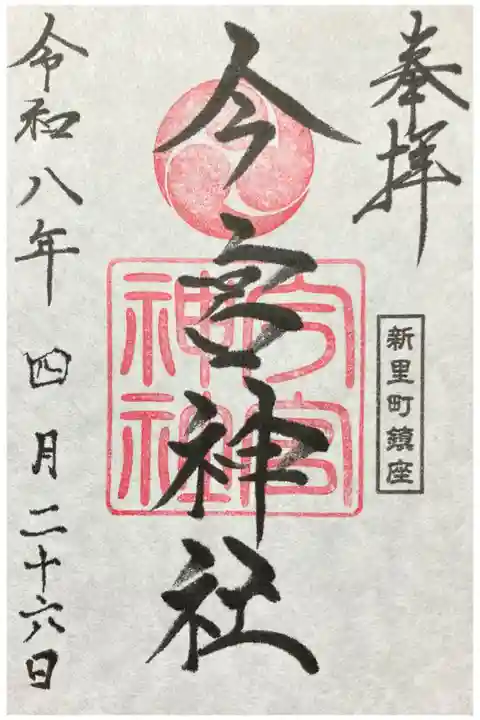 奉拝
新里町鎮座
今宮神社
今宮
神社
令和八年 四月二十六日